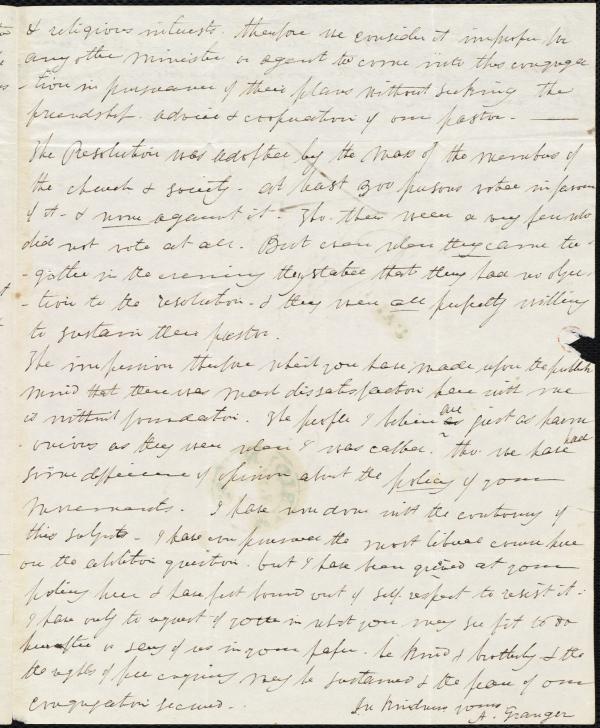 & religious interests. therefore we consider it improper for
any other minister or agent to come into this congrega
-tion in pursuance of their plans without seeking the
friendship. advice & cooperation of our pastor. —
The Resolution was adopted by the mass of the members of
the church & society - at least 300 persons voted in favor
of it - & none against it - Tho. there were a very few who
did not vote at all. But even when they came to-
-gether in the evening they stated that they had no objec-
-tion to the resolution - & they were all perfectly willing
to sustain their pastor.
The impression therefore which you have made upon the publick
mind that there was much dissatisfaction here with me
is without foundation. The people I believe are just as harm
-onious as they were when I was called. tho we have had
some difference of opinion about the policy of your
movements. I have now done with the controversy of
this subject - I have ever pursued the most liberal course here
on the abolition question. but I have been grieved at your
policy here & have felt bound out of self respect to resist it -
I have only to request of you in what you may see fit to do
hereafter or say of us in your paper. be kind & brotherly & the
the rights of free enquiry may be sustained & the peace of our
congregation secured -
In kindness yours
A. Granger